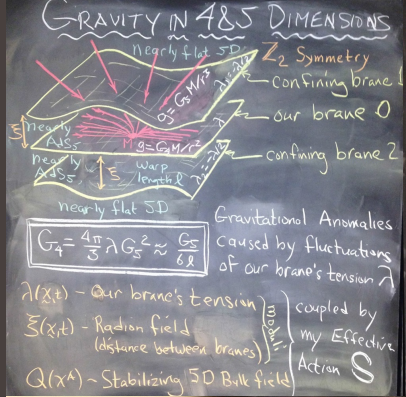 GRAVITY IN 4&5 DIMENSIONS
nearly flat 5D
Z₂ Symmetry
g = G₅M/r³
λ₁ = -λ/2
confining brane 1
λ
our brane 0
ξ
nearly AdS₅
M
g = G₄M/r²
nearly AdS₅
ξ
warp length ℓ
λ₂ = -λ/2
confining brane 2
nearly flat 5D
G₄ = 4π/3 λ G₅² ≈ G₅/6ℓ
Gravitational Anomalies
caused by fluctuations
of our brane's tension λ
λ(x,t) - Our brane's tension
ξ(x,t) - Radion field
(distance between branes)
Q(xᴬ) ~ Stabilizing 5D Bulk field
moduli
coupled by
my Effective
Action S